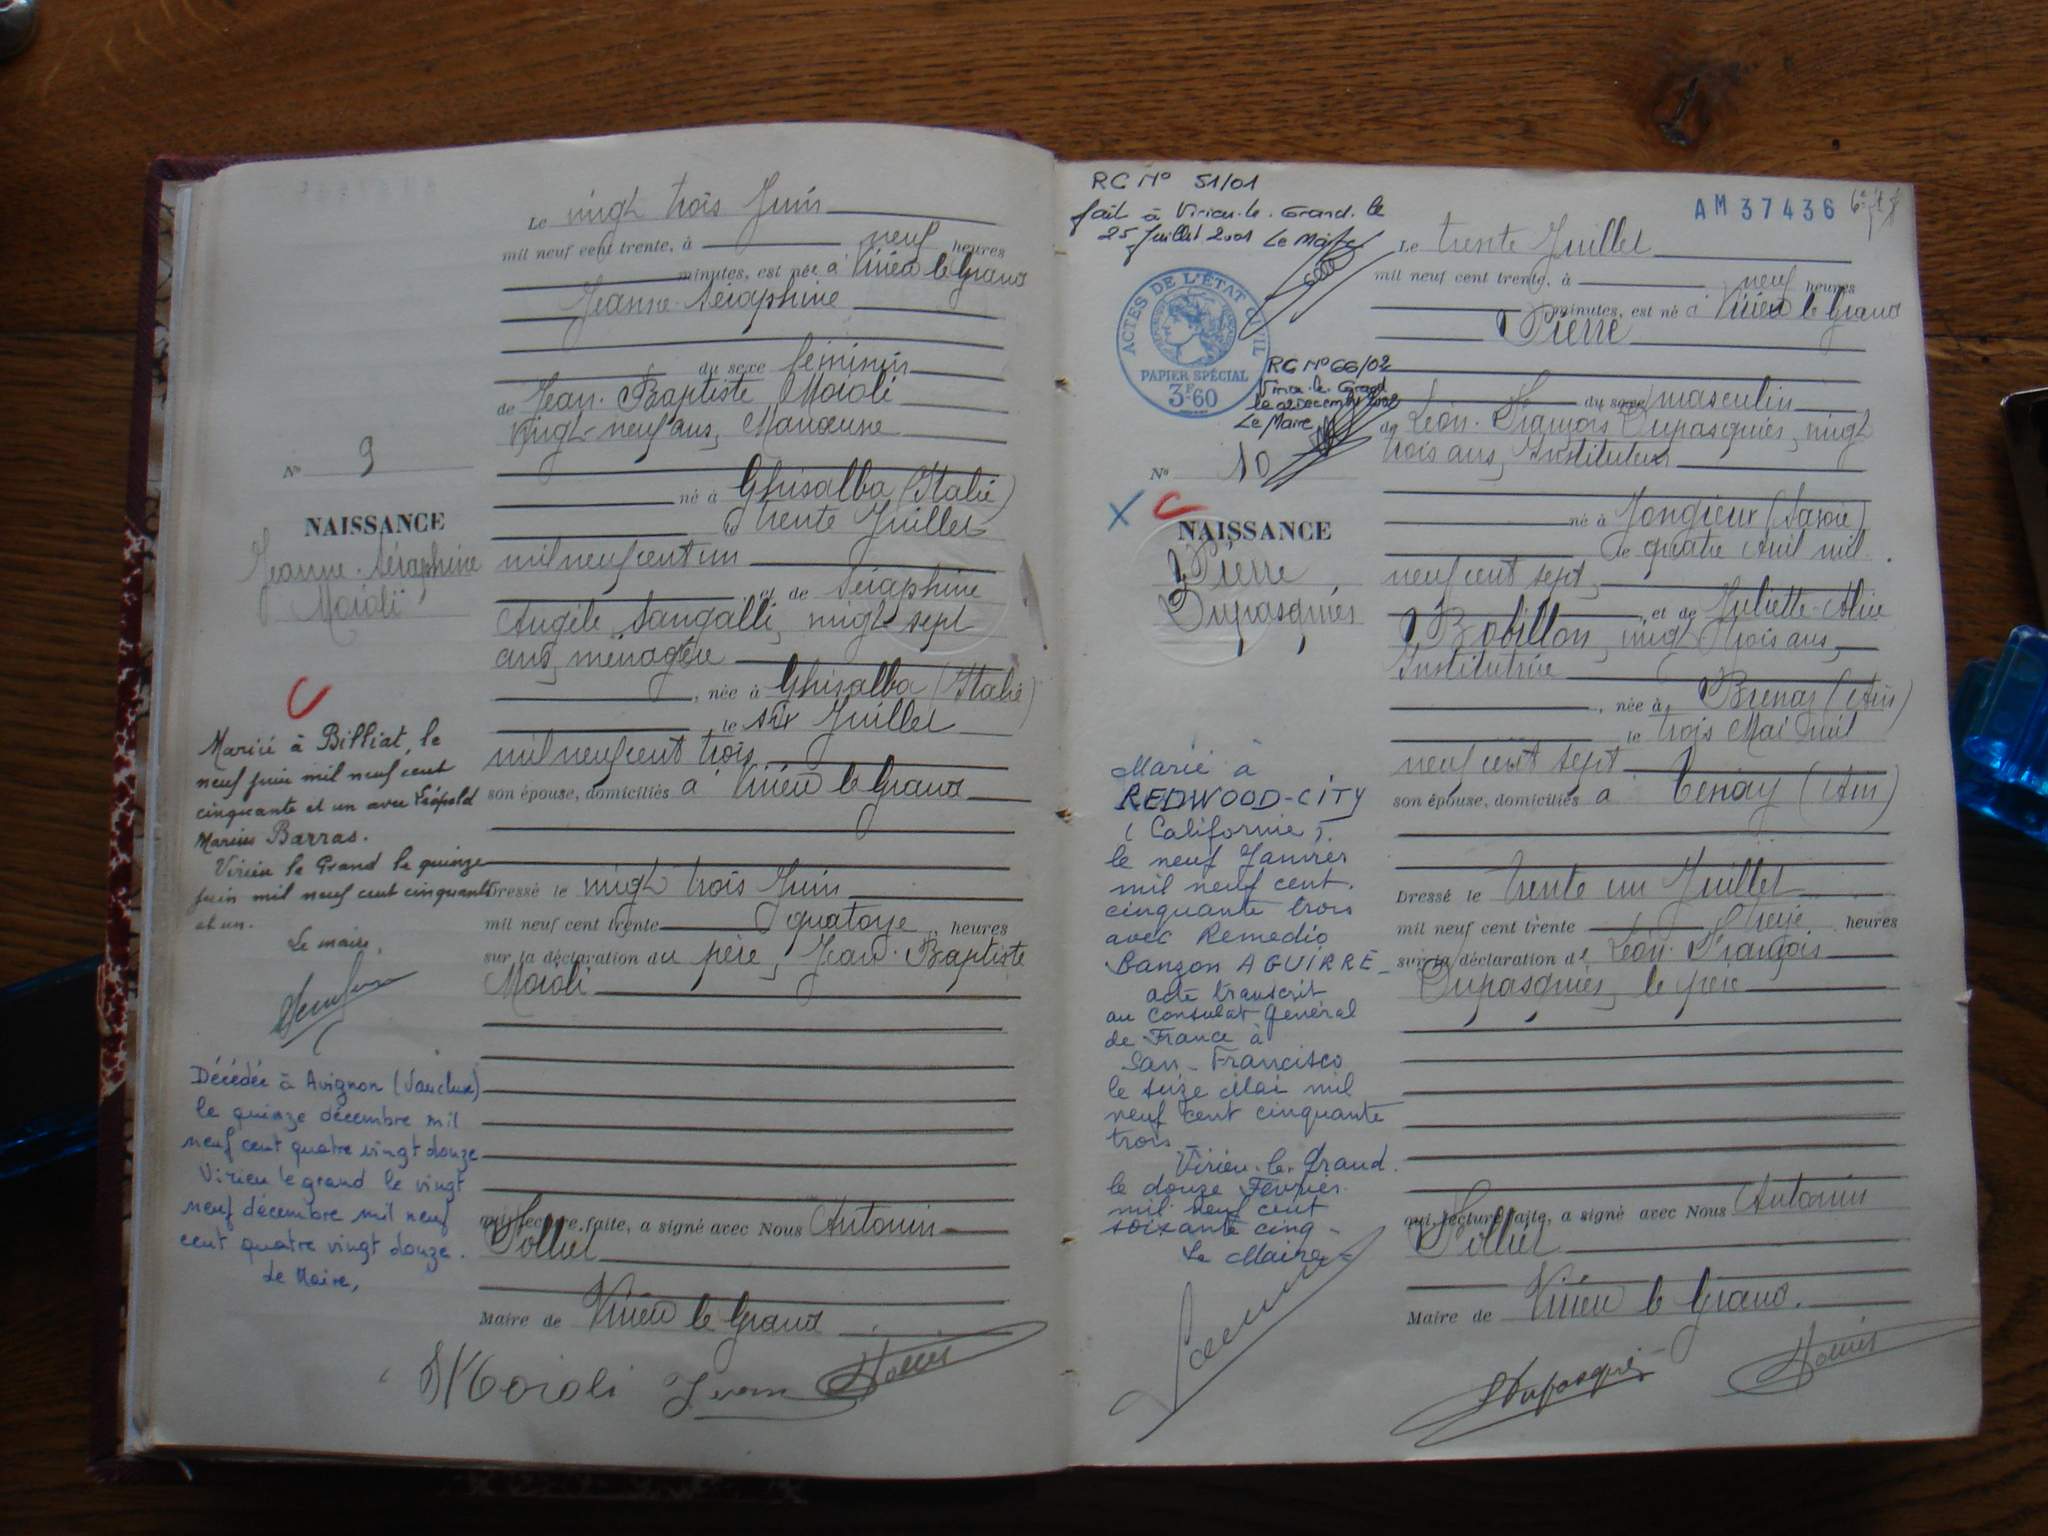 Le vingt trois Juin
mil neuf cent trente, à neuf heures
minutes, est née à Virieu le Grand
Jeanne Séraphine
du sexe féminin
de Jean-Baptiste Moioli
vingt-neuf ans, Manoeuvre
né à Ghisalba (Italie)
le trente Juillet
mil neuf cent un
et de Séraphine
Angèle Sangalli, vingt sept
ans, ménagère
, née à Ghisalba (Italie)
le six Juillet
mil neuf cent trois
son épouse, domiciliés à Virieu le Grand
Dressé le vingt trois Juin
mil neuf cent trente quatorze heures
sur la déclaration du père, Jean-Baptiste
Moioli
qui, lecture faite, a signé avec Nous Antonin
Maire de Virieu le Grand
Moioli Jean
No 9
NAISSANCE
Jeanne-Séraphine
Moioli
Mariée à Billiat, le
neuf juin mil neuf cent
cinquante et un avec Léopold
Marius Barras.
Virieu le Grand le quinze
juin mil neuf cent cinquante
et un.
Le maire,
Décédée à Avignon (Vaucluse)
le quinze décembre mil
neuf cent quatre vingt douze
Virieu le grand le vingt
neuf décembre mil neuf
cent quatre vingt douze.
Le Maire,
RC No 51/01
fait à Virieu-le-Grand le
25 Juillet 2001 Le Maire
AM 37436
ACTES DE L'ÉTAT CIVIL
PAPIER SPÉCIAL
3F60
RC No 66/02
Virieu-le-Grand
le 02 Decembre 2002
Le Maire
No 10
X
NAISSANCE
Pierre
Dupasquier
Marié à
REDWOOD-CITY
(Californie),
le neuf Janvier
mil neuf cent
cinquante trois
avec Remedio
Banzon AGUIRRE_
acte transcrit
au Consulat Général
de France à
San-Francisco
le seize Mai mil
neuf cent cinquante
trois
Virieu-le-Grand
le douze Février
mil neuf cent
soixante cinq_
Le Maire
Le trente Juillet
mil neuf cent trente, à neuf heures
minutes, est né à Virieu le Grand
Pierre
du sexe masculin
de Léon-François Dupasquier, vingt
trois ans, Instituteur
né à Jongieux (Savoie)
le quatre Avril mil
neuf cent sept,
et de Juliette-Alice
Bobillon, vingt trois ans,
Institutrice
, née à Brenaz (Ain)
le trois Mai mil
neuf cent sept
son épouse, domiciliés à Tenay (Ain)
Dressé le trente un Juillet
mil neuf cent trente treize heures
sur la déclaration de Léon-François
Dupasquier, le père
qui, lecture faite, a signé avec Nous Antonin
Maire de Virieu le Grand.
Dupasquier